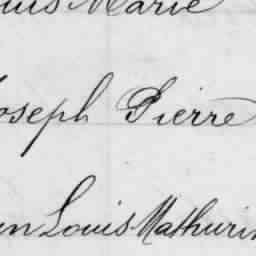 uis Marie
Joseph Pierre
en Louis Mathurin